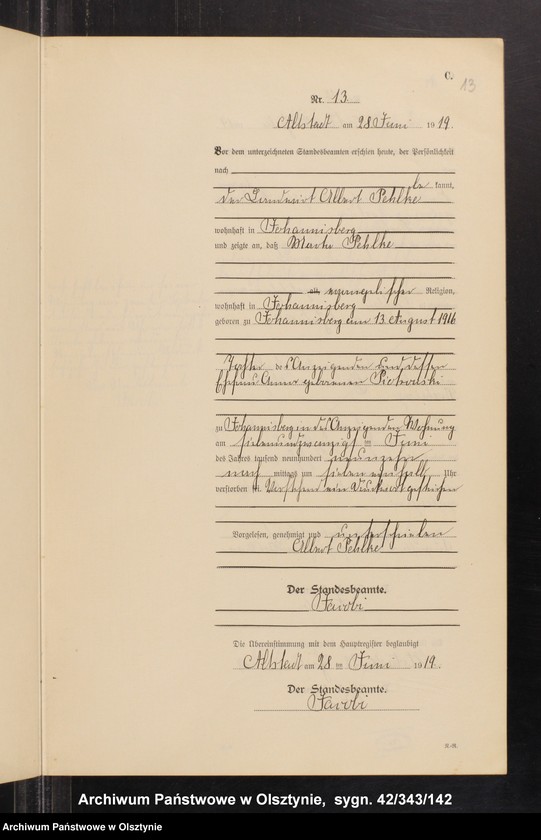 C.
13
Nr. 13
Altstadt am 28 Juni 1919.
Vor dem unterzeichneten Standesbeamten erschien heute, der Persönlichkeit
nach
be kannt,
der Landwirt Albert Pehlke
wohnhaft in Johannisberg
und zeigte an, daß Marta Pehlke
alt, evangelischer Religion,
wohnhaft in Johannisberg
geboren zu Johannisberg am 13. August 1916
Tochter des Anzeigenden und dessen
Ehefrau Anna geborenen Piotrowski
zu Johannisberg in des Anzeigenden Wohnung
am siebenundzwanzigsten Juni
des Jahres tausend neunhundert neunzehn
nach mittags um sieben einhalb Uhr
verstorben sei. Vorstehend ein Druckwort gestrichen
Vorgelesen, genehmigt und unterschrieben
Albert Pehlke
Der Standesbeamte.
Jacobi
Die Übereinstimmung mit dem Hauptregister beglaubigt
Altstadt am 28 ten Juni 1919.
Der Standesbeamte.
Jacobi
Archiwum Państwowe w Olsztynie, sygn. 42/343/142
Archiwum Państwowe w Olsztynie